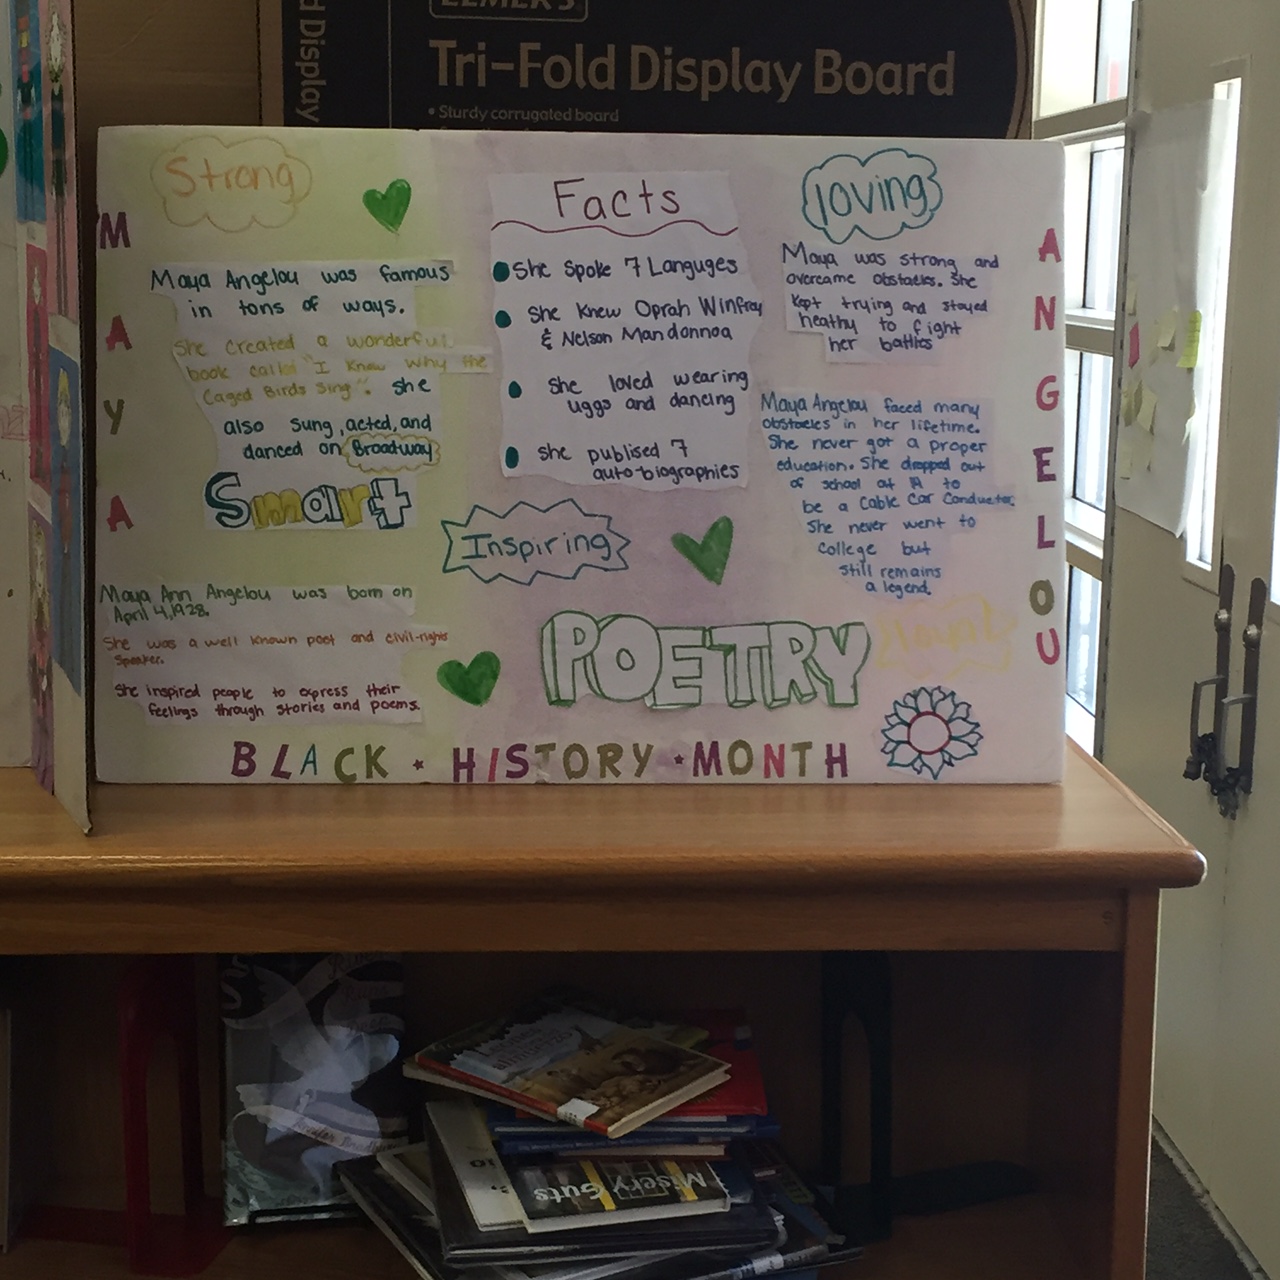 d Display
ELMER'S
Tri-Fold Display Board
• Sturdy corrugated board
MAYA
ANGELOU
Strong
Maya Angelou was famous
in tons of ways.
She created a wonderful
book called "I Know why the
Caged Birds Sing". She
also sung, acted, and
danced on Broadway
Smart
Maya Ann Angelou was born on
April 4, 1928.
She was a well known poet and civil-rights
Speaker.
She inspired people to express their
feelings through stories and poems.
Facts
She spoke 7 Languges
She knew Oprah Winfray
& Nelson Mandonnoa
She loved wearing
uggs and dancing
she publised 7
auto-biographies
Inspiring
POETRY
loving
Maya was strong and
overcame obstacles. She
kept trying and stayed
heathy to fight
her battles
Maya Angelou faced many
obstacles in her lifetime.
She never got a proper
education. She dropped out
of school at to
be a Cable Car Conductor.
She never went to
college but
still remains
a legend.
BLACK * HISTORY * MONTH
Misery Guts